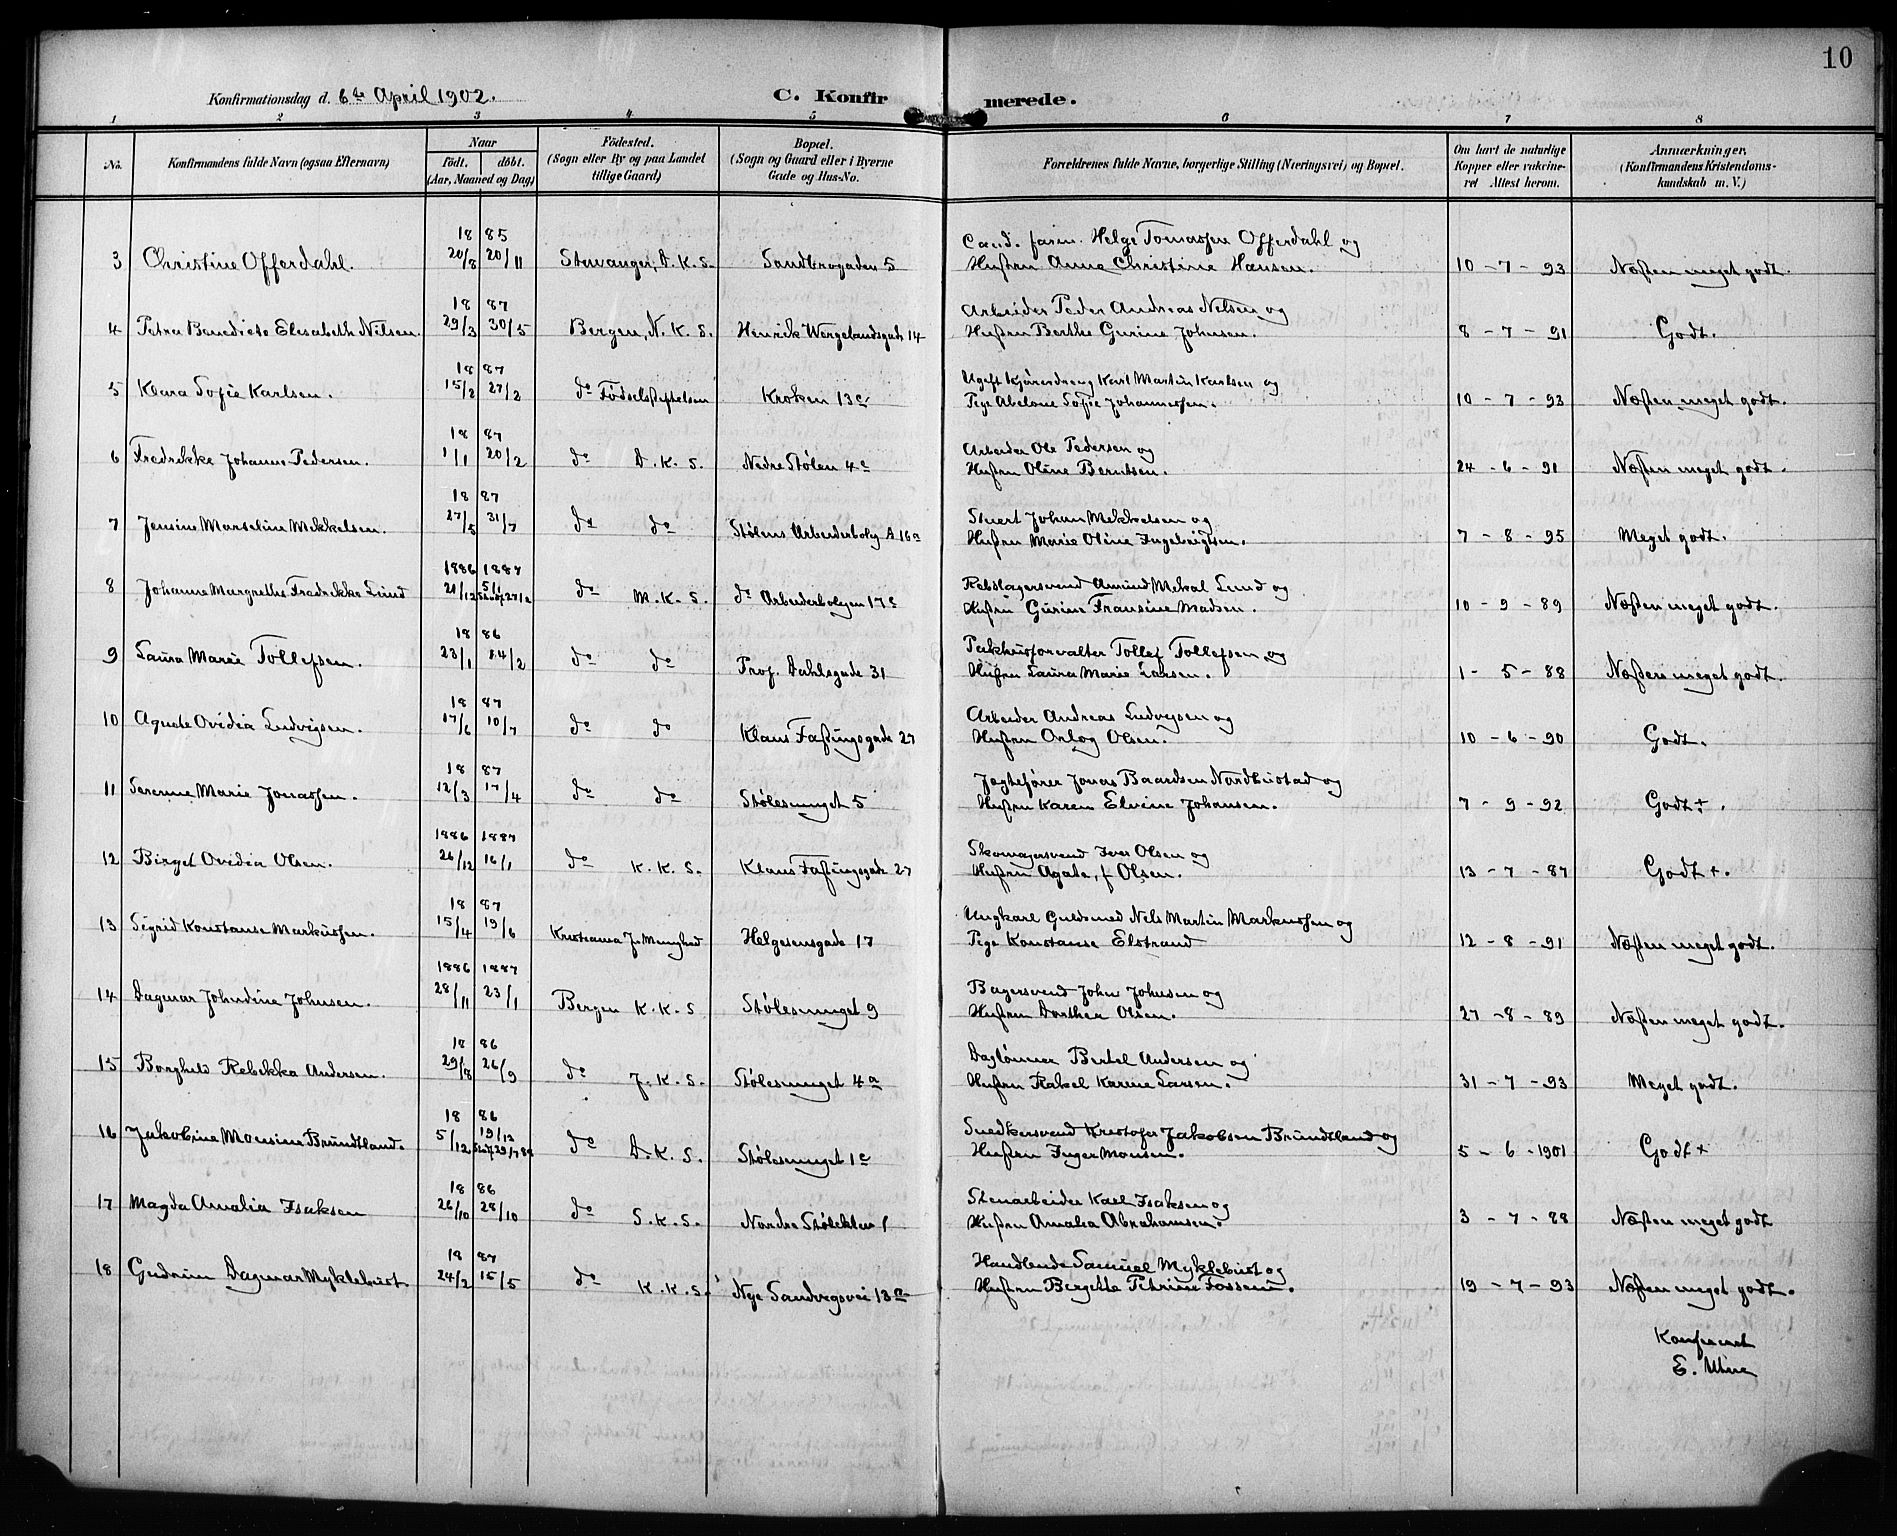 10
Konfirmationsdag d. 6te April 1902.
C. Konfirmerede.
1 2 3 4 5 6 7 8
No.
Konfirmandens fulde Navn (ogsaa Efternavn)
Naar
födt. döbt.
(Aar, Maaned og Dag)
Födested.
(Sogn eller By og paa Landet
tillige Gaard)
Bopæl.
(Sogn og Gaard eller i Byerne
Gade og Hus-No.
Forældrenes fulde Navne, borgerlige Stilling (Næringsvei) og Bopæl.
Om havt de naturlige
Kopper eller vakcine-
ret Attest herom.
Anmærkninger,
(Konfirmandens Kristendoms-
kundskab m. V.)
18 85
3 Christine Offerdahl. 20/8 20/11 Stavanger, D. K. S. Sandbrogaden 5
Cand. farm. Helge Tomassen Offerdahl og
Hustru Anna Christine Hansen. 10-7-93 Næsten meget godt.
18 87
4 Petra Benedicte Elisabeth Nilsen. 29/3 30/5 Bergen, N. K. S. Henrik Wergelandsgade 14
Arbeider Peder Andreas Nelsen og
Hustru Berthe Gurine Johnsen. 8-7-91 Godt.
18 87
5 Klara Sofie Karlsen. 15/2 27/2 do Fødselsstiftelsen Kroken 13c
Ugift Kjøredreng Karl Martin Karlsen og
Pige Abelone Sofie Johannessen. 10-7-93 Næsten meget godt.
18 87
6 Fredrikke Johanne Pedersen. 1/1 20/2 do D. K. S. Nedre Stølen 4c
Arbeider Ole Pedersen og
Hustru Oline Berntsen. 24-6-91 Næsten meget godt.
18 87
7 Jensine Marselin Mekkelsen. 27/5 31/7 do do Stølens Arbeiderbolig A 16a
Stuert Johan Mekkelsen og
Hustru Marie Oline Ingebrigtsen. 7-8-95 Meget godt.
1886 1887
8 Johanne Margrethe Fredrikke Lund 21/12 5/1 do M. K. S. do Arbeiderboligen 17c
Rebslagersvend Amund Mekal Lund og
Hustru Gurine Fransine Madsen. 10-9-89 Næsten meget godt.
18 86
9 Laura Marie Tollefsen. 23/1 24/2 do do Prof. Dahlsgade 31
Pakhusforvalter Tollef Tollefsen og
Hustru Laura Marie Larsen. 1-5-88 Næsten meget godt.
18 87
10 Agnete Ovidia Ludvigsen. 17/6 10/7 do do Klaus Fastingsgade 27
Arbeider Andreas Ludvigsen og
Hustru Orlog Olsen. 10-6-90 Godt.
18 87
11 Serenne Marie Jonassen. 12/3 17/4 do do Stølesmuget 5
Jægtefører Jonas Baardsen Nordhustad og
Hustru Karen Elvine Johansen. 7-9-92 Godt+.
1886 1887
12 Birget Ovidia Olsen. 26/12 16/1 do K. K. S. Klaus Fastingsgade 27
Skomagersvend Iver Olsen og
Hustru Agate, f Olsen. 13-7-87 Godt+.
18 87
13 Sigrid Konstanse Markussen. 15/4 19/6 Kristiania J. Menighed Helgesensgade 17
Ungkarl Guldsmed Nils Martin Markussen og
Pige Konstanse Elstrand 12-8-91 Næsten meget godt.
1886 1887
14 Dagmar Johndine Johnsen. 28/11 23/1 Bergen K. K. S Stølesmuget 9
Bagersvend John Johnsen og
Hustru Dorthea Olsen. 27-8-89 Næsten meget godt.
18 86
15 Borghild Rebekka Andersen. 29/8 26/9 do J. K. S. Stølesmuget 4a
Daglønner Bertel Andersen og
Hustru Rakel Karine Larsen. 31-7-93 Meget godt.
18 86
16 Jakobine Monsine Brundtland. 5/12 19/12 do D. K. S. Stølesmuget 1c
Snedkersvend Kristofer Jakobsen Brundtland og
Hustru Inger Monsen. 5-6-1901 Godt+
18 86
17 Magda Amalia Isaksen 26/10 28/10 do S. K. S. Nordre Stølekleu 1
Stenarbeider Karl Isaksen og
Hustru Amalia Abrahamsen. 3-7-88 Næsten meget godt
18 87
18 Gudrun Dagmar Myklebust. 24/2 15/5 do K. K. S. Nye Sandvigsvei 13a
Handlende Samuel Myklebust og
Hustru Bergitta Petrine Fossen. 19-7-93 Næsten meget godt.
Konfereret